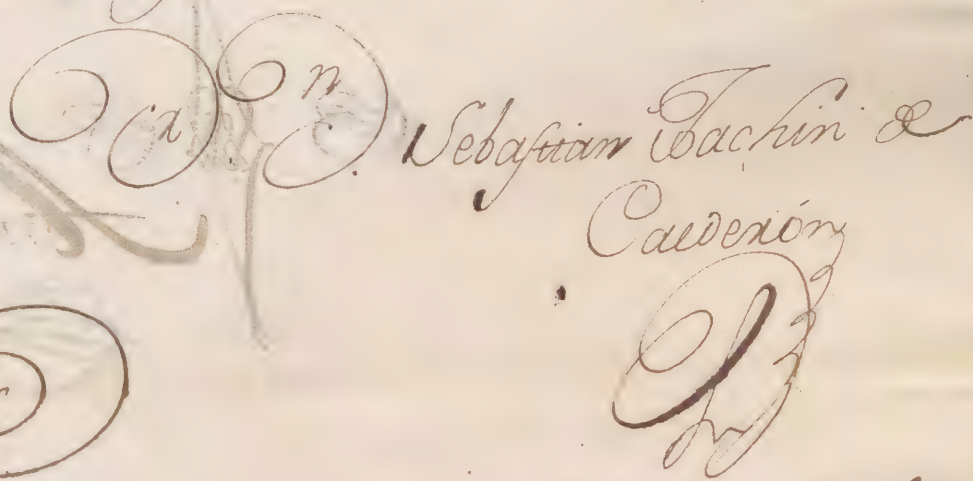 Sebastian Bachin &
Calderón